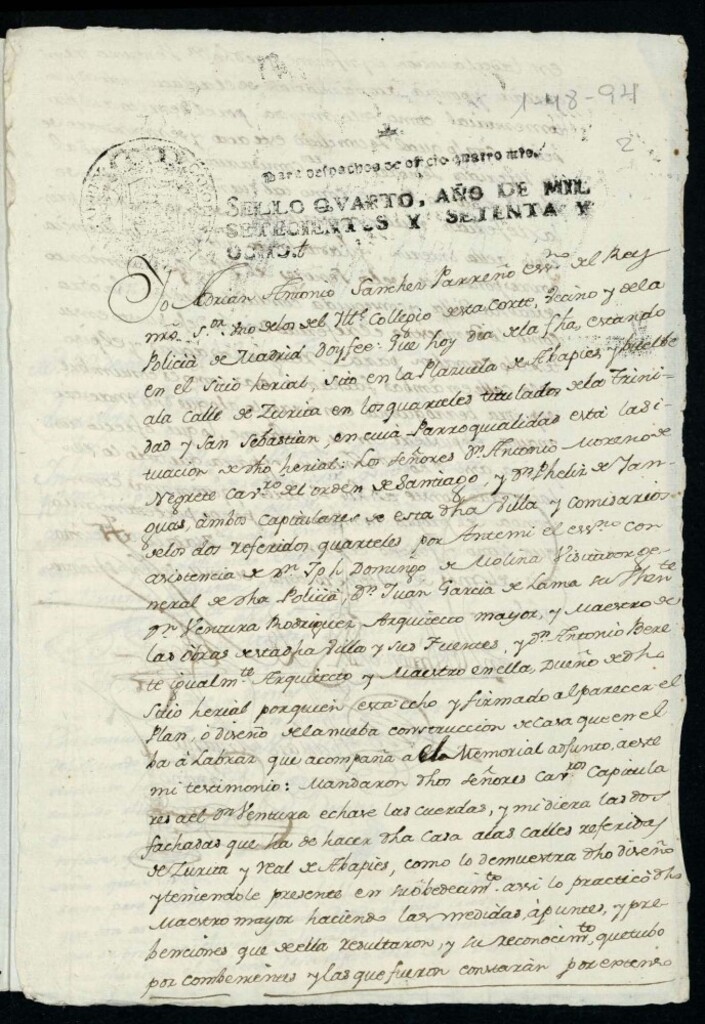 1-48-94
2
Para despachos de oficio quatro mrs.
SELLO QVARTO, AÑO DE MIL
SETECIENTOS Y SETENTA Y
OCHO.
Yo Adrian Antonio Sanchez Parreño essno. del Rey
nro. Sor. uno de los del Ille. Collegio de esta Corte, Vecino y de la
Policia de Madrid Doy fee: Que hoy dia de la fha, estando
en el sitio herial, sito en la Plazuela de Abapies, y buelbe
ala Calle de Zurita en los quarteles titulados de la Trini-
dad y San Sebastian, en cuia Parroqualidad está la si-
tuacion de dho herial: Los señores Dn. Antonio Moreno de
Negrete Cavro. del orden de Santiago, y Dn. Phelix de Yan-
guas, ámbos Capitulares de esta dha Villa y comisarios
de los dos referidos quarteles, por Antemi el essno con
asistencia de Dn. Joh. Domingo de Molina Visitador ge-
neral de dha Policia, Dn. Juan Garcia de Lama su Thente
Dn. Ventura Rodriguez Arquitecto mayor, y Maestro de
las obras de esta dha Villa y sus Fuentes, y Dn. Antonio Bere
te igualmte. Arquitecto y Maestro en ella, Dueño de dho
Sitio herial por quien esta echo y firmado al parecer el
Plan, ó diseño de la nueba construccion de Casa que en el
ba á Labrar que acompaña á el Memorial adjunto, á este
mi testimonio: Mandaron dhos señores Cavros Capitula
res a el Dn. Ventura echase las cuerdas, y midiera las dos
fachadas que ha de hacer dha Casa alas calles referidas
de Zurita y Real de Abapies, como lo demuestra dho diseño
y teniendole presente en su óbedecimto. assi lo practicó dho
Maestro mayor haciendo las medidas, ápuntes, y pre-
benciones que de ella resultaron, y su reconocimto, que tubo
por combenientes y las que fueron constarán por extenso